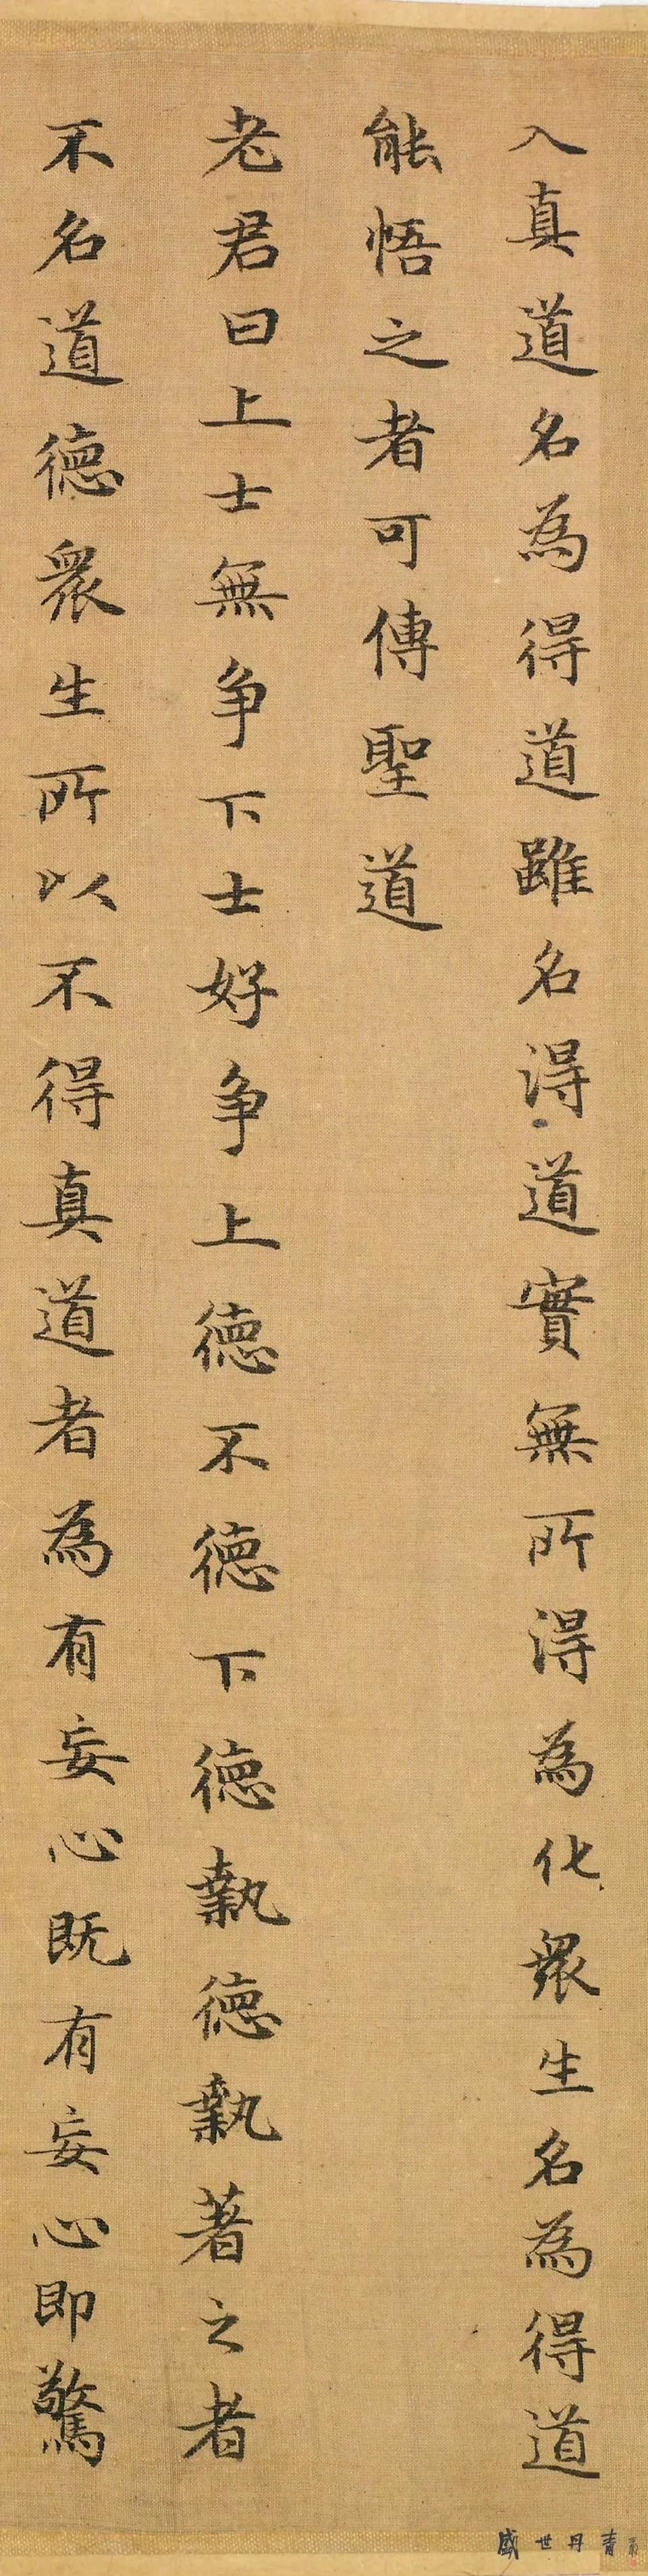 入真道名為得道雖名得道實無所得為化眾生名為得道
能悟之者可傳聖道
老君曰上士無争下士好争上德不德下德執德執著之者
不名道德眾生所以不得真道者為有妄心既有妄心即驚
盛世丹青